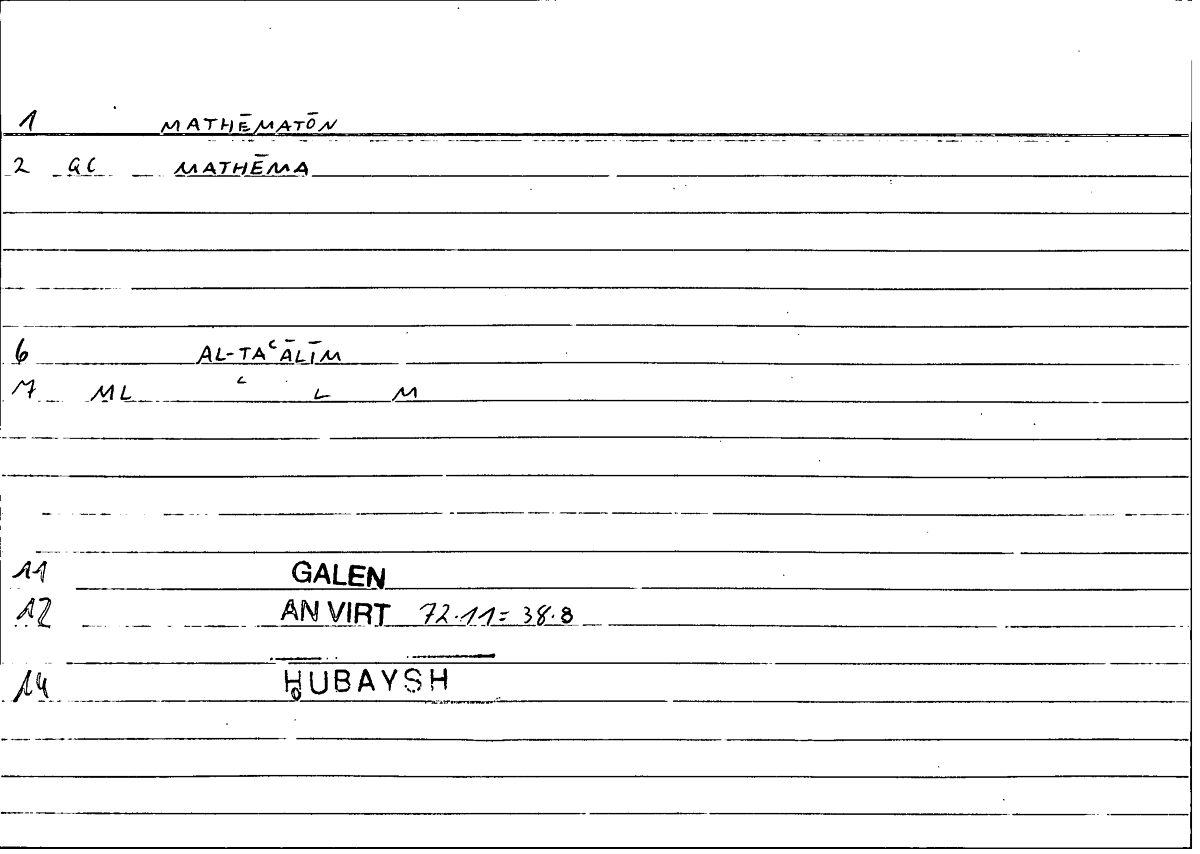 1 MATHĒMATŌN
2 GC MATHĒMA
6 AL-TAʿĀLĪM
7 ML ʿ L M
11 GALEN
12 AN VIRT 72.11 = 38.8
14 ḤUBAYSH